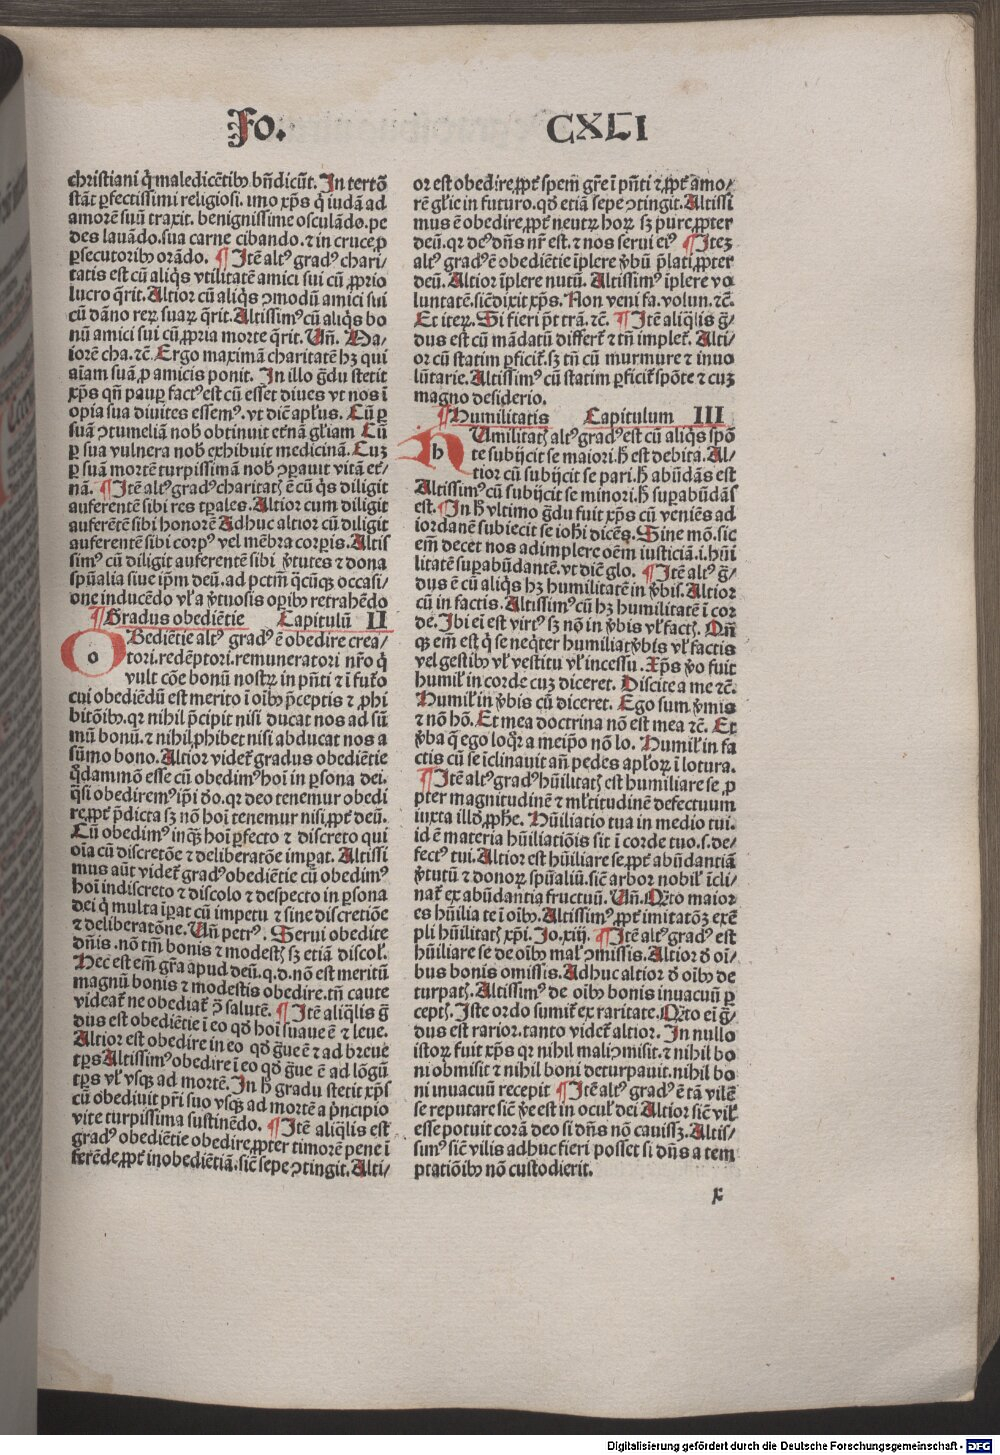 Fo. CXLI
christiani q̄ maledicētibꝫ bn̄dicūt. In tertō
stāt ꝑfectissimi religiosi. imo xp̄s q̄ iudā ad
amorē suū traxit. benignissime osculādo. pe
des lauādo. sua carne cibando. ⁊ in cruce ꝓ
ꝑsecutoribꝫ orādo. ¶ Itē altꝰ gradꝰ chari⸗
tatis est cū aliq̄s vtilitatē amici sui cū ꝓprio
lucro q̄rit. Altior cū aliq̄s ꝯmodū amici sui
cū dāno reꝝ suaꝝ q̄rit. Altissimꝰ cū aliq̄s bo
nū amici sui cū ꝓpria morte q̄rit. Vn̄. Ma⸗
iorē cha. ⁊c̄. Ergo maximā charitatē hꝫ qui
aīam suā ꝓ amicis ponit. In illo ḡdu stetit
xp̄s qn̄ pauꝑ factꝰ est cū esset diues vt nos ī
opia sua diuites essemꝰ. vt dic̄ apl̄us. Cū ꝑ
suā ꝯtumeliā nob̄ obtinuit et̄nā gl̄iam Cū
ꝑ sua vulnera nob̄ exhibuit medicinā. Cuꝫ
ꝑ suā mortē turpissimā nob̄ ꝯꝑauit vitā et̄⸗
nā. ¶ Itē altꝰ gradꝰ charitatꝭ ē cū q̄s diligit
auferentē sibi res tꝑales. Altior cum diligit
auferētē sibi honorē Adhuc altior cū diligit
auferentē sibi corpꝰ vel mēbra corꝑis. Altis
simꝰ cū diligit auferentē sibi v̄tutes ⁊ dona
spūalia siue ip̄m deū. ad pctm̄ q̄cūqꝫ occasi⸗
one inducēdo vl̄ a v̄tuosis oꝑibꝫ retrahēdo
¶ Gradus obediētie Capitulū II
OBediētie altꝰ gradꝰ ē obedire crea⸗
tori. redēptori. remuneratori nr̄o q̄
vult cōe bonū nostꝝ in pn̄ti ⁊ ī futo
cui obediēdū est merito ī oībꝫ p̄ceptis ⁊ ꝓhi
bitōibꝫ. qꝛ nihil p̄cipit nisi ducat nos ad sū
mū bonū. ⁊ nihil ꝓhibet nisi abducat nos a
sūmo bono. Altior videt̄ gradus obediētie
q̄dammō esse cū obedimꝰ hoī in ꝑsona dei.
q̄si obediremꝰ ip̄i deo. qꝛ deo tenemur obedi
re. ꝓpt̄ p̄dicta sꝫ nō hoī tenemur nisi ꝓpt̄ deū.
Cū obedimꝰ inqꝫ hoī ꝑfecto ⁊ discreto qui
oīa cū discretōe ⁊ deliberatōe imꝑat. Altissi
mus aūt videt̄ gradꝰ obediētie cū obedimꝰ
hoī indiscreto ⁊ discolo ⁊ despecto in ꝑsona
dei q̄ multa īꝑat cū impetu ⁊ sine discretiōe
⁊ deliberatōne. Vn̄ petrꝰ. Serui obedite
dn̄is. nō tm̄ bonis ⁊ modestꝭ sꝫ etiā discol̄.
Hec est em̄ gr̄a apud deū. q. d. nō est meritū
magnū bonis ⁊ modestis obedire. tn̄ caute
videat̄ ne obediat̄ ꝯ̄ salutē. ¶ Itē aliq̄lis ḡ
dus est obediētie ī eo qd̄ hoī suaue ē ⁊ leue.
Altior est obedire in eo qd̄ ḡue ē ⁊ ad breue
tp̄s Altissimꝰ obedire ī eo qd̄ ḡue ē ad lōgū
tp̄s vl̄ vsqꝫ ad mortē. In h̄ gradu stetit xp̄s
cū obediuit pr̄i suo vsqꝫ ad mortē a p̄ncipio
vite turpissima sustinēdo. ¶ Itē aliq̄lis est
gradꝰ obediētie obedire ꝓpter timorē pene ī
ferēde ꝓpt̄ inobediētiā. sic̄ sepe ꝯtingit. Alti⸗
or est obedire ꝓpt̄ spem̄ gr̄e ī pn̄ti ⁊ ꝓpt̄ amo⸗
rē gl̄ie in futuro. qd̄ etiā sepe ꝯtingit. Altissi
mus ē obedire ꝓpt̄ neutꝝ hoꝝ sꝫ pure ꝓpter
deū. qꝛ deꝰ dn̄s nr̄ est. ⁊ nos serui eiꝰ ¶ Iteꝫ
altꝰ gradꝰ ē obediētie īplere v̄bū p̄lati ꝓpter
deū. Altior īplere nutū. Altissimꝰ īplere vo
luntatē. sic̄ dixit xp̄s. Non veni fa. volun. ⁊c̄.
Et iteꝝ. Si fieri pt̄ trā. ⁊c̄. ¶ Itē aliq̄lis ḡ⸗
dus est cū mādatū differt̄ ⁊ tn̄ implet̄. Alti⸗
or cū statim ꝑficit̄. sꝫ tn̄ cū murmure ⁊ inuo
lūtarie. Altissimꝰ cū statim ꝑficit̄ spōte ⁊ cuꝫ
magno desiderio.
¶ Humilitatis Capitulum III
HUmilitatꝭ altꝰ gradꝰ est cū aliq̄s spō
te subijcit se maiori. h̄ est debita. Al⸗
tior cū subijcit se pari. h̄ abūdās est
Altissimꝰ cū subijcit se minori. h̄ suꝑabūdās
est. ¶ In h̄ vltimo ḡdu fuit xp̄s cū veniēs ad
iordanē subiecit se ioh̄i dicēs. Sine mō. sic
em̄ decet nos adimplere oēm iusticiā. i. hūi
litatē suꝑabūdantē. vt dic̄ glo. ¶ Itē altꝰ ḡ⸗
dus ē cū aliq̄s hꝫ humilitatē in v̄bis. Altior
cū in factis. Altissimꝰ cū hꝫ humilitatē ī cor
de. Ibi ei est virtꝰ sꝫ nō in v̄bis vl̄ factꝭ. Om̄
qꝫ em̄ est q̄ se neq̄ter humiliat v̄bis vl̄ factis
vel gestibꝫ vl̄ vestitu vl̄ incessu. Xp̄s v̄o fuit
humil̄ in corde cuꝫ diceret. Discite a me ⁊c̄.
Humil̄ in v̄bis cū diceret. Ego sum v̄mis
⁊ nō hō. Et mea doctrina nō est mea ⁊c̄. Et
v̄ba q̄ ego loq̄r a meip̄o nō lo. Humil̄ in fa
ctis cū se īclinauit an̄ pedes apl̄oꝝ ī lotura.
¶ Itē altꝰ gradꝰ hūilitatꝭ est humiliare se ꝓ
pter magnitudinē ⁊ ml̄titudinē defectuum
iuxta illd̄ ꝓphe. Hūiliatio tua in medio tui.
id ē materia hūiliatiōis sit ī corde tuo. s. de⸗
fectꝰ tui. Altior est hūiliare se ꝓpt̄ abūdantiā
v̄tutū ⁊ donoꝝ spūaliū. sic̄ arbor nobil̄ īcli⸗
nat̄ ex abūdantia fructuū. Vn̄. Qn̄to maior
es hūilia te ī oībꝫ. Altissimꝰ ꝓpt̄ imitatōꝫ exē
pli hūilitatꝭ xp̄i. Jo. xiij. ¶ Itē altꝰ gradꝰ est
hūiliare se de oībꝫ mal̄ ꝯmissis. Altior d̄ oī⸗
bus bonis omissis. Adhuc altior d̄ oībꝫ de
turpatꝭ. Altissimꝰ de oībꝫ bonis inuacuū ꝑ
ceptꝭ. Iste ordo sumit̄ ex raritate. Qn̄to ei ḡ⸗
dus est rarior. tanto videt̄ altior. In nullo
istoꝝ fuit xp̄s qꝛ nihil mali ꝯmisit. ⁊ nihil bo
ni obmisit ⁊ nihil boni deturpauit. nihil bo
ni inuacuū recepit ¶ Itē altꝰ gradꝰ ē tā vilē
se reputare sic̄ v̄e est in ocul̄ dei Altior sic̄ vil̄
esse potuit corā deo si dn̄s nō cauissꝫ. Altis⸗
simꝰ sic̄ vilis adhuc fieri posset si dn̄s a tem
ptatiōibꝫ nō custodierit.
x
Digitalisierung gefördert durch die Deutsche Forschungsgemeinschaft - DFG